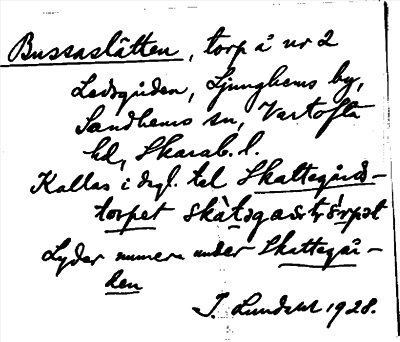 Bussaslätten, torp å nr 2
Ledsgården, Ljunghems by,
Sandhems sn, Vartofta
hd, Skarab. l.
Kallas i dagl. tal Skattegårds-
torpet
Lyder numera under Skattegår-
den
J. Lundahl 1928.